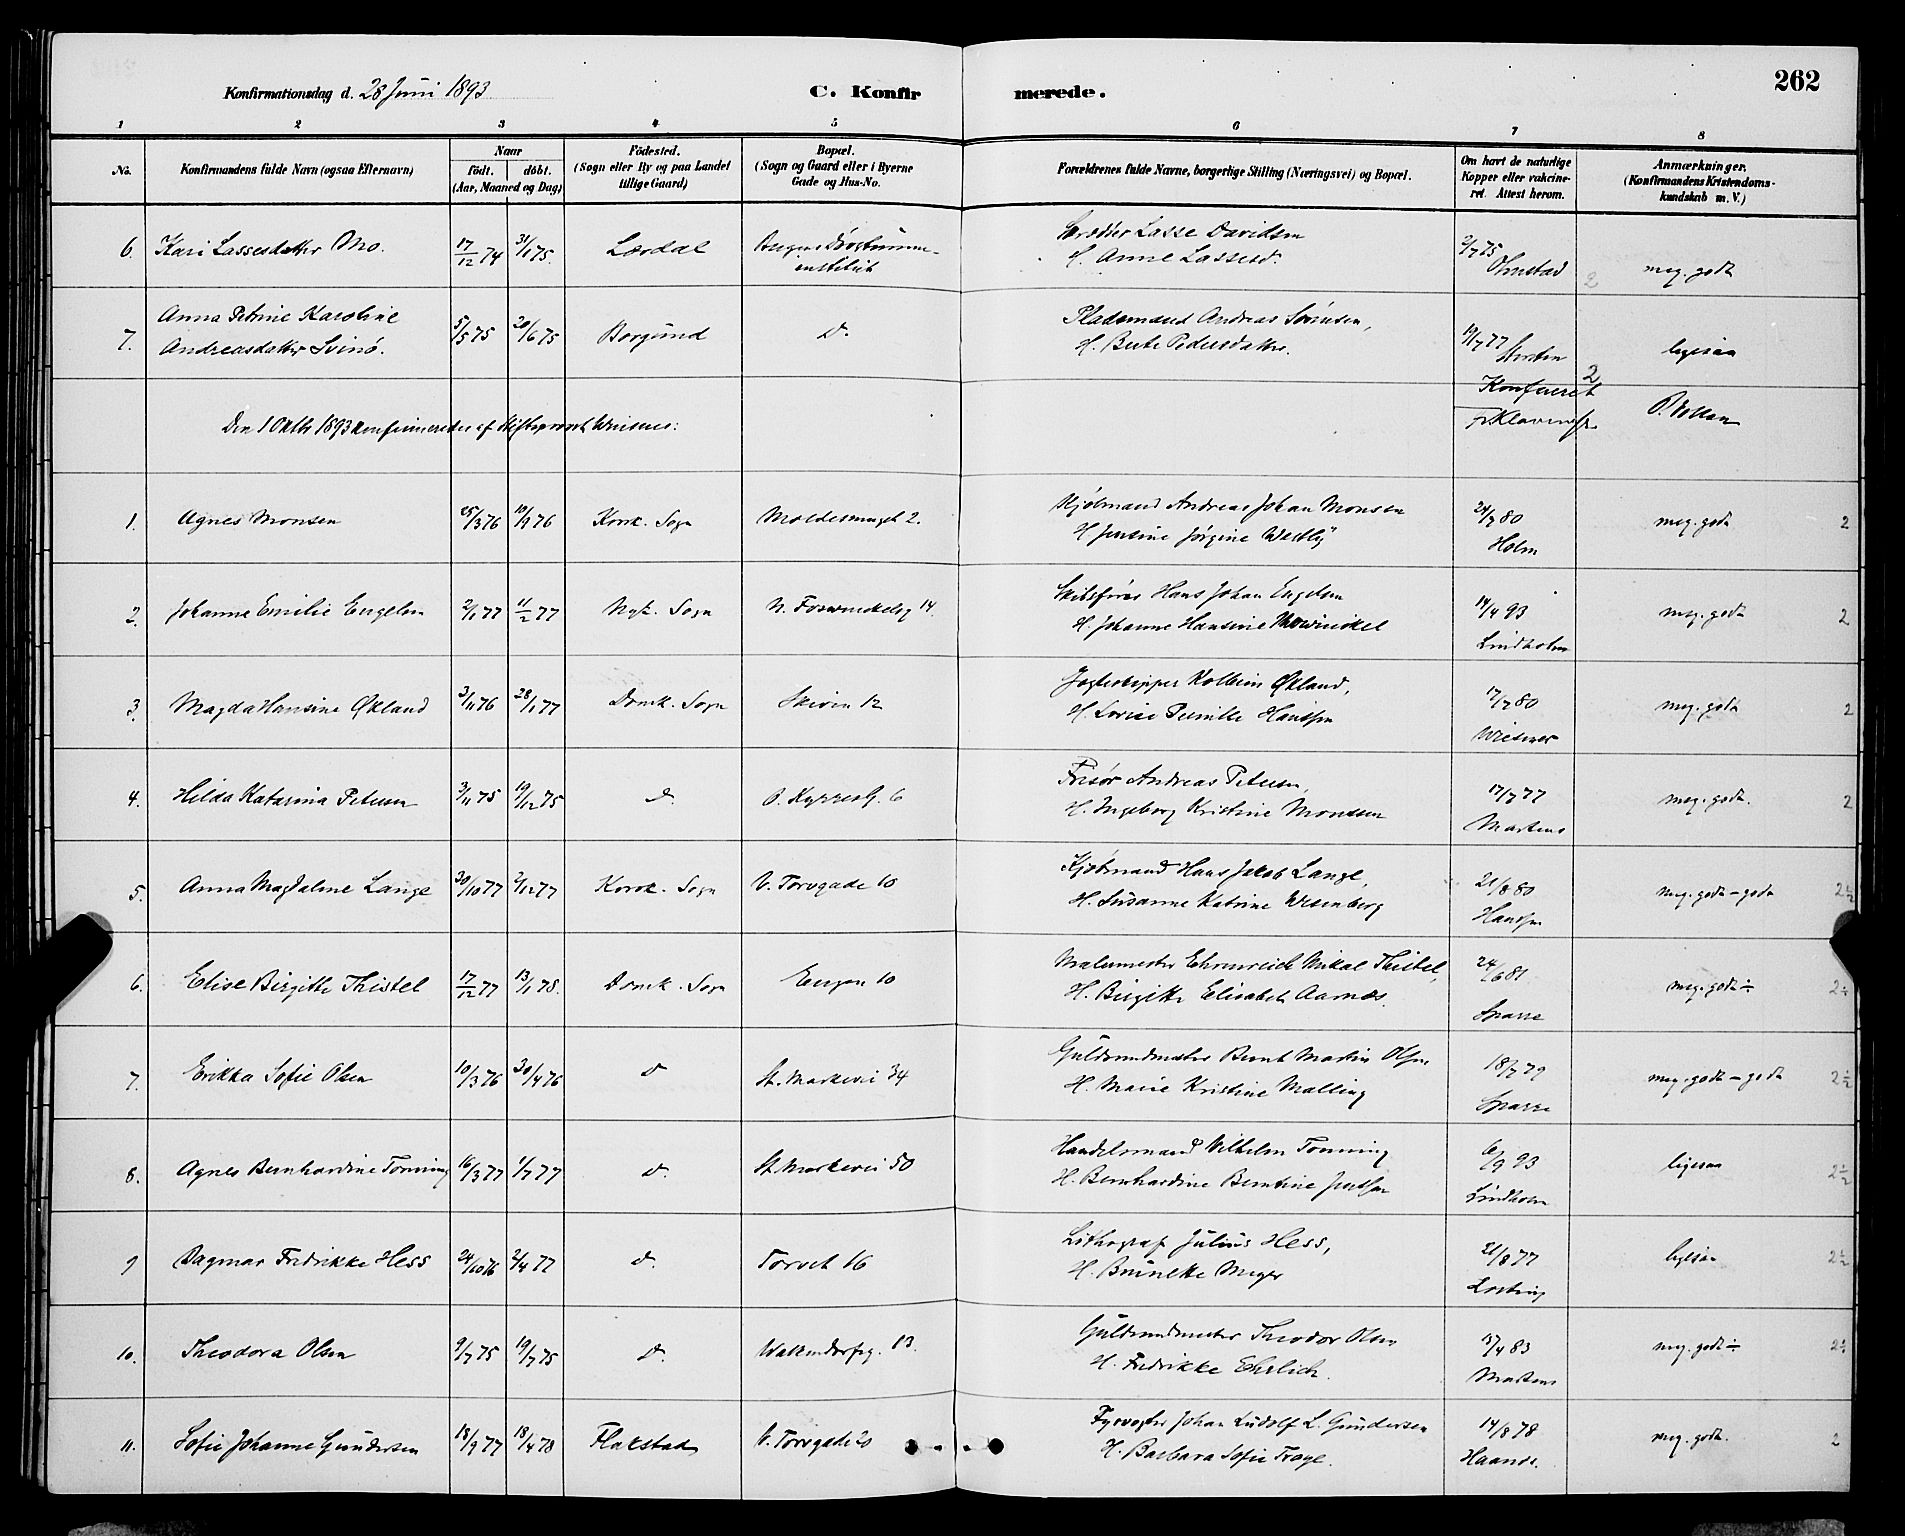 262
Konfirmationsdag d. 28 Juni 1893
C. Konfirmerede.
1 2 3 4 5 6 7 8
No.
Konfirmandens fulde Navn (ogsaa Efternavn)
Naar
födt. döbt.
(Aar, Maaned og Dag)
Födested.
(Sogn eller By og paa Landet
tillige Gaard)
Bopæl.
(Sogn og Gaard eller i Byerne
Gade og Hus-No.
Forældrenes fulde Navne, borgerlige Stilling (Næringsvei) og Bopæl.
Om havt de naturlige
Kopper eller vakcine-
ret. Attest herom.
Anmærkninger.
(Konfirmandens Kristendoms-
kundskab m. V.)
6. Kari Lassesdatter Mo. 17/12 74 31/1 75. Lærdal
institut
Lasse Davidsen
H. Anne Lassesd.
2/7 75
Olmstad
meg. godt
7. Anna Petrine Karoline
Andreasdatter Svinø. 5/5 75 20/6 75 Borgund d.
Pladsmand Andreas Sørensen,
H. Berte Pedersdatter.
19/7 77
ligesaa
2
Konfereret
Den 1 Oktb 1893 konfirmeredes af Stiftsprovst Wriesner:
1. Agnes Monsen 25/3 76 10/9 76 Korsk. Sogn 2.
Kjøbmand Andreas Johan Monsen
H. Jensine Jørgine Westby
24/7 80
Holm
meg. godt 2
2. Johanne Emilie Engelsen 2/1 77 11/2 77 Nyk. Sogn 14.
Skibsfører Hans Johan Engelsen
H. Johanne Hansine Mowinckel
14/4 93
Lindholm
meg. godt 2
3. Magda Hansine Økland 3/11 76 28/1 77 Domk. Sogn Skiven 12
Jagteskipper Kolbein Økland,
H. Lovise Pernille Hanssen
17/7 80
Wriesner
meg. godt 2
4. Hilda Katarina Petersen 3/11 75 19/12 75 d. O. Kyrresg. 6
Frisør Andreas Petersen,
H. Ingeborg Kristine Monsen
17/7 77
Martens
meg. godt. 2
5. Anna Magdalene Lange 30/10 77 2/12 77 Korsk. Sogn V. Torvgade 10
Kjøbmand Hans Jakob Lange,
H. Susanne Katrine Wesenberg
21/8 80
Hanssen
meg. godt - godt 2½
6. Elise Birgitte Thistel 17/12 77 13/1 78. Domk. Sogn Engen 10
Malermester Ehrenreich Mikal Thistel,
H. Birgitte Elisabeth Aarnæs.
24/6 81
Sparre
meg. godt ÷
7. Erikka Sofie Olsen 10/3 76 30/4 76 d St. Markevei 34
Guldsmedmester Bernt Martin Olsen
H. Marie Kristine Malling
18/7 79
Sparre
meg. godt - godt 2½
8. Agnes Bernhardine Tonning 16/3 77 1/7 77 d. St. Markevei 50
Handelsmand Vilhelm Tonning
H. Bernhardine Berntine Jentsen
6/9 93
Lindholm
ligesaa 2½
9 Dagmar Fredrikke Hess 24/10 76 2/4 77 d. Torvet 16
Lithograf Julius Hess,
H. Brunette Meyer
21/8 77
ligesaa 2½
10. Theodora Olsen 9/7 75 19/7 75 d. Walkendorfsg. 13.
Guldsmedmester Theodor Olsen
H. Fredrikke Ehrlich.
/4 83
Martens
meg. godt ÷
11. Sofie Johanne Gundersen 18/9 77 18/4 78 Flakstad V. Torvgade 20
Fyrvogter Johan Ludolf L. Gundersen
H. Barbara Sofie Traye.
14/8 78
Haand.
meg. godt. 2